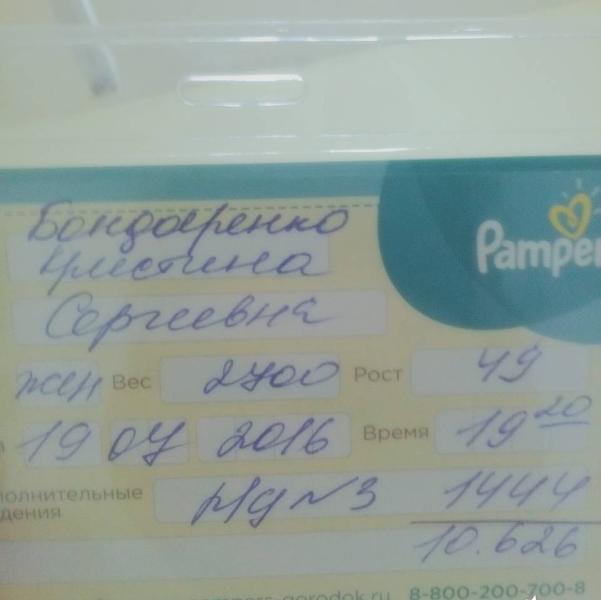 Бондаренко
Pampers
Кристина
Сергеевна
жен Вес 2700 Рост 49
19 07 2016 Время 19 20
полнительные
дения
рд №3 1444
10.626
pampers-gorodok.ru 8-800-200-700-8